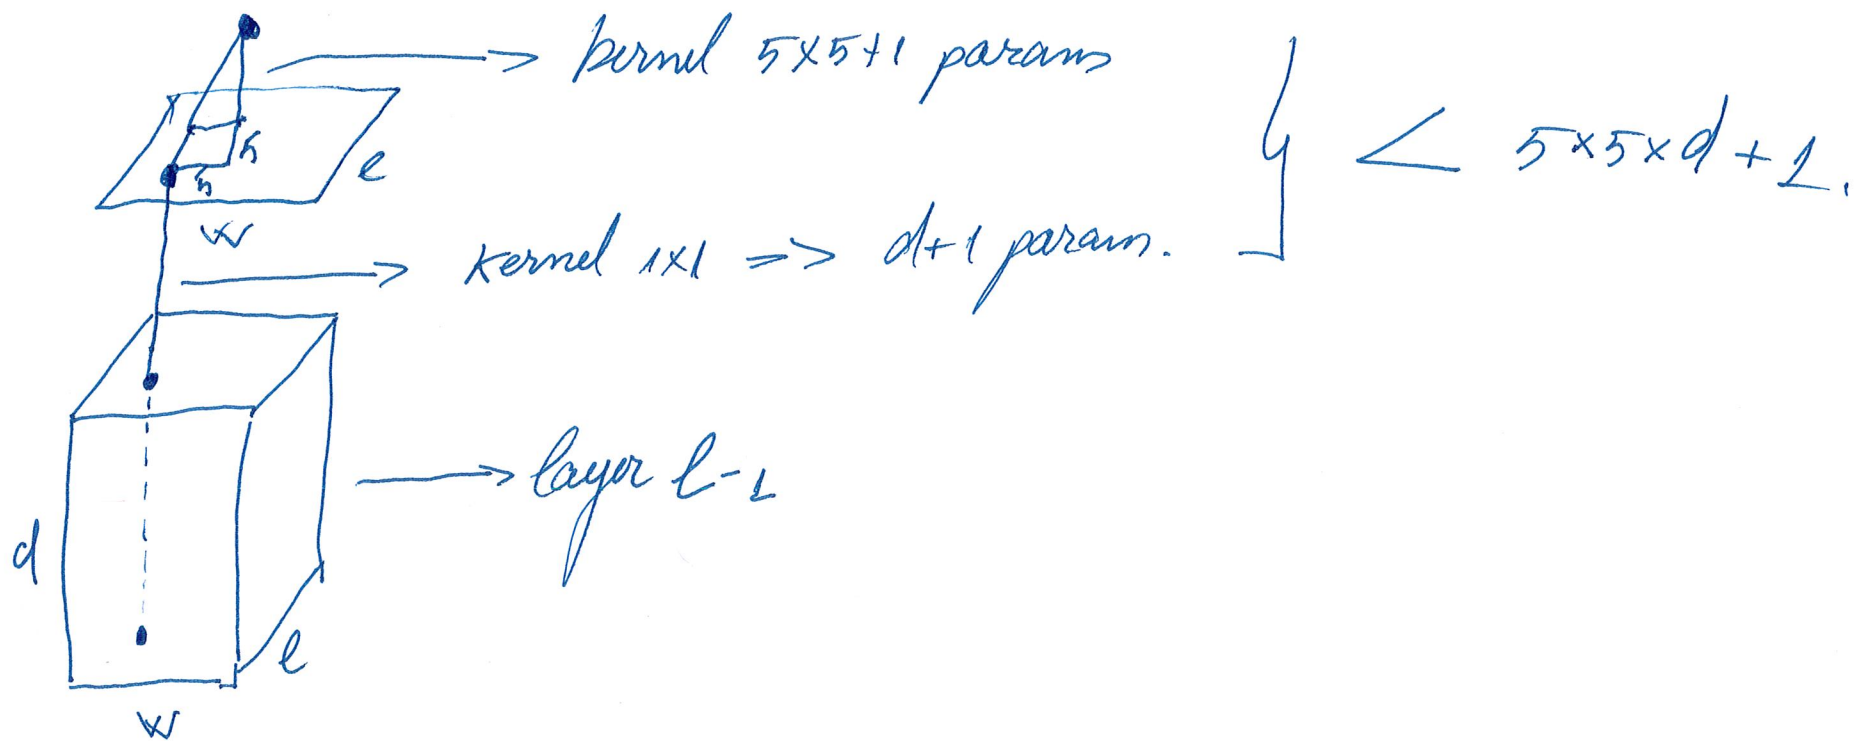 kernel 5×5+1 params
< 5×5×d+1.
5
5
l
w
kernel 1×1 => d+1 param.
layer l-1
d
l
w